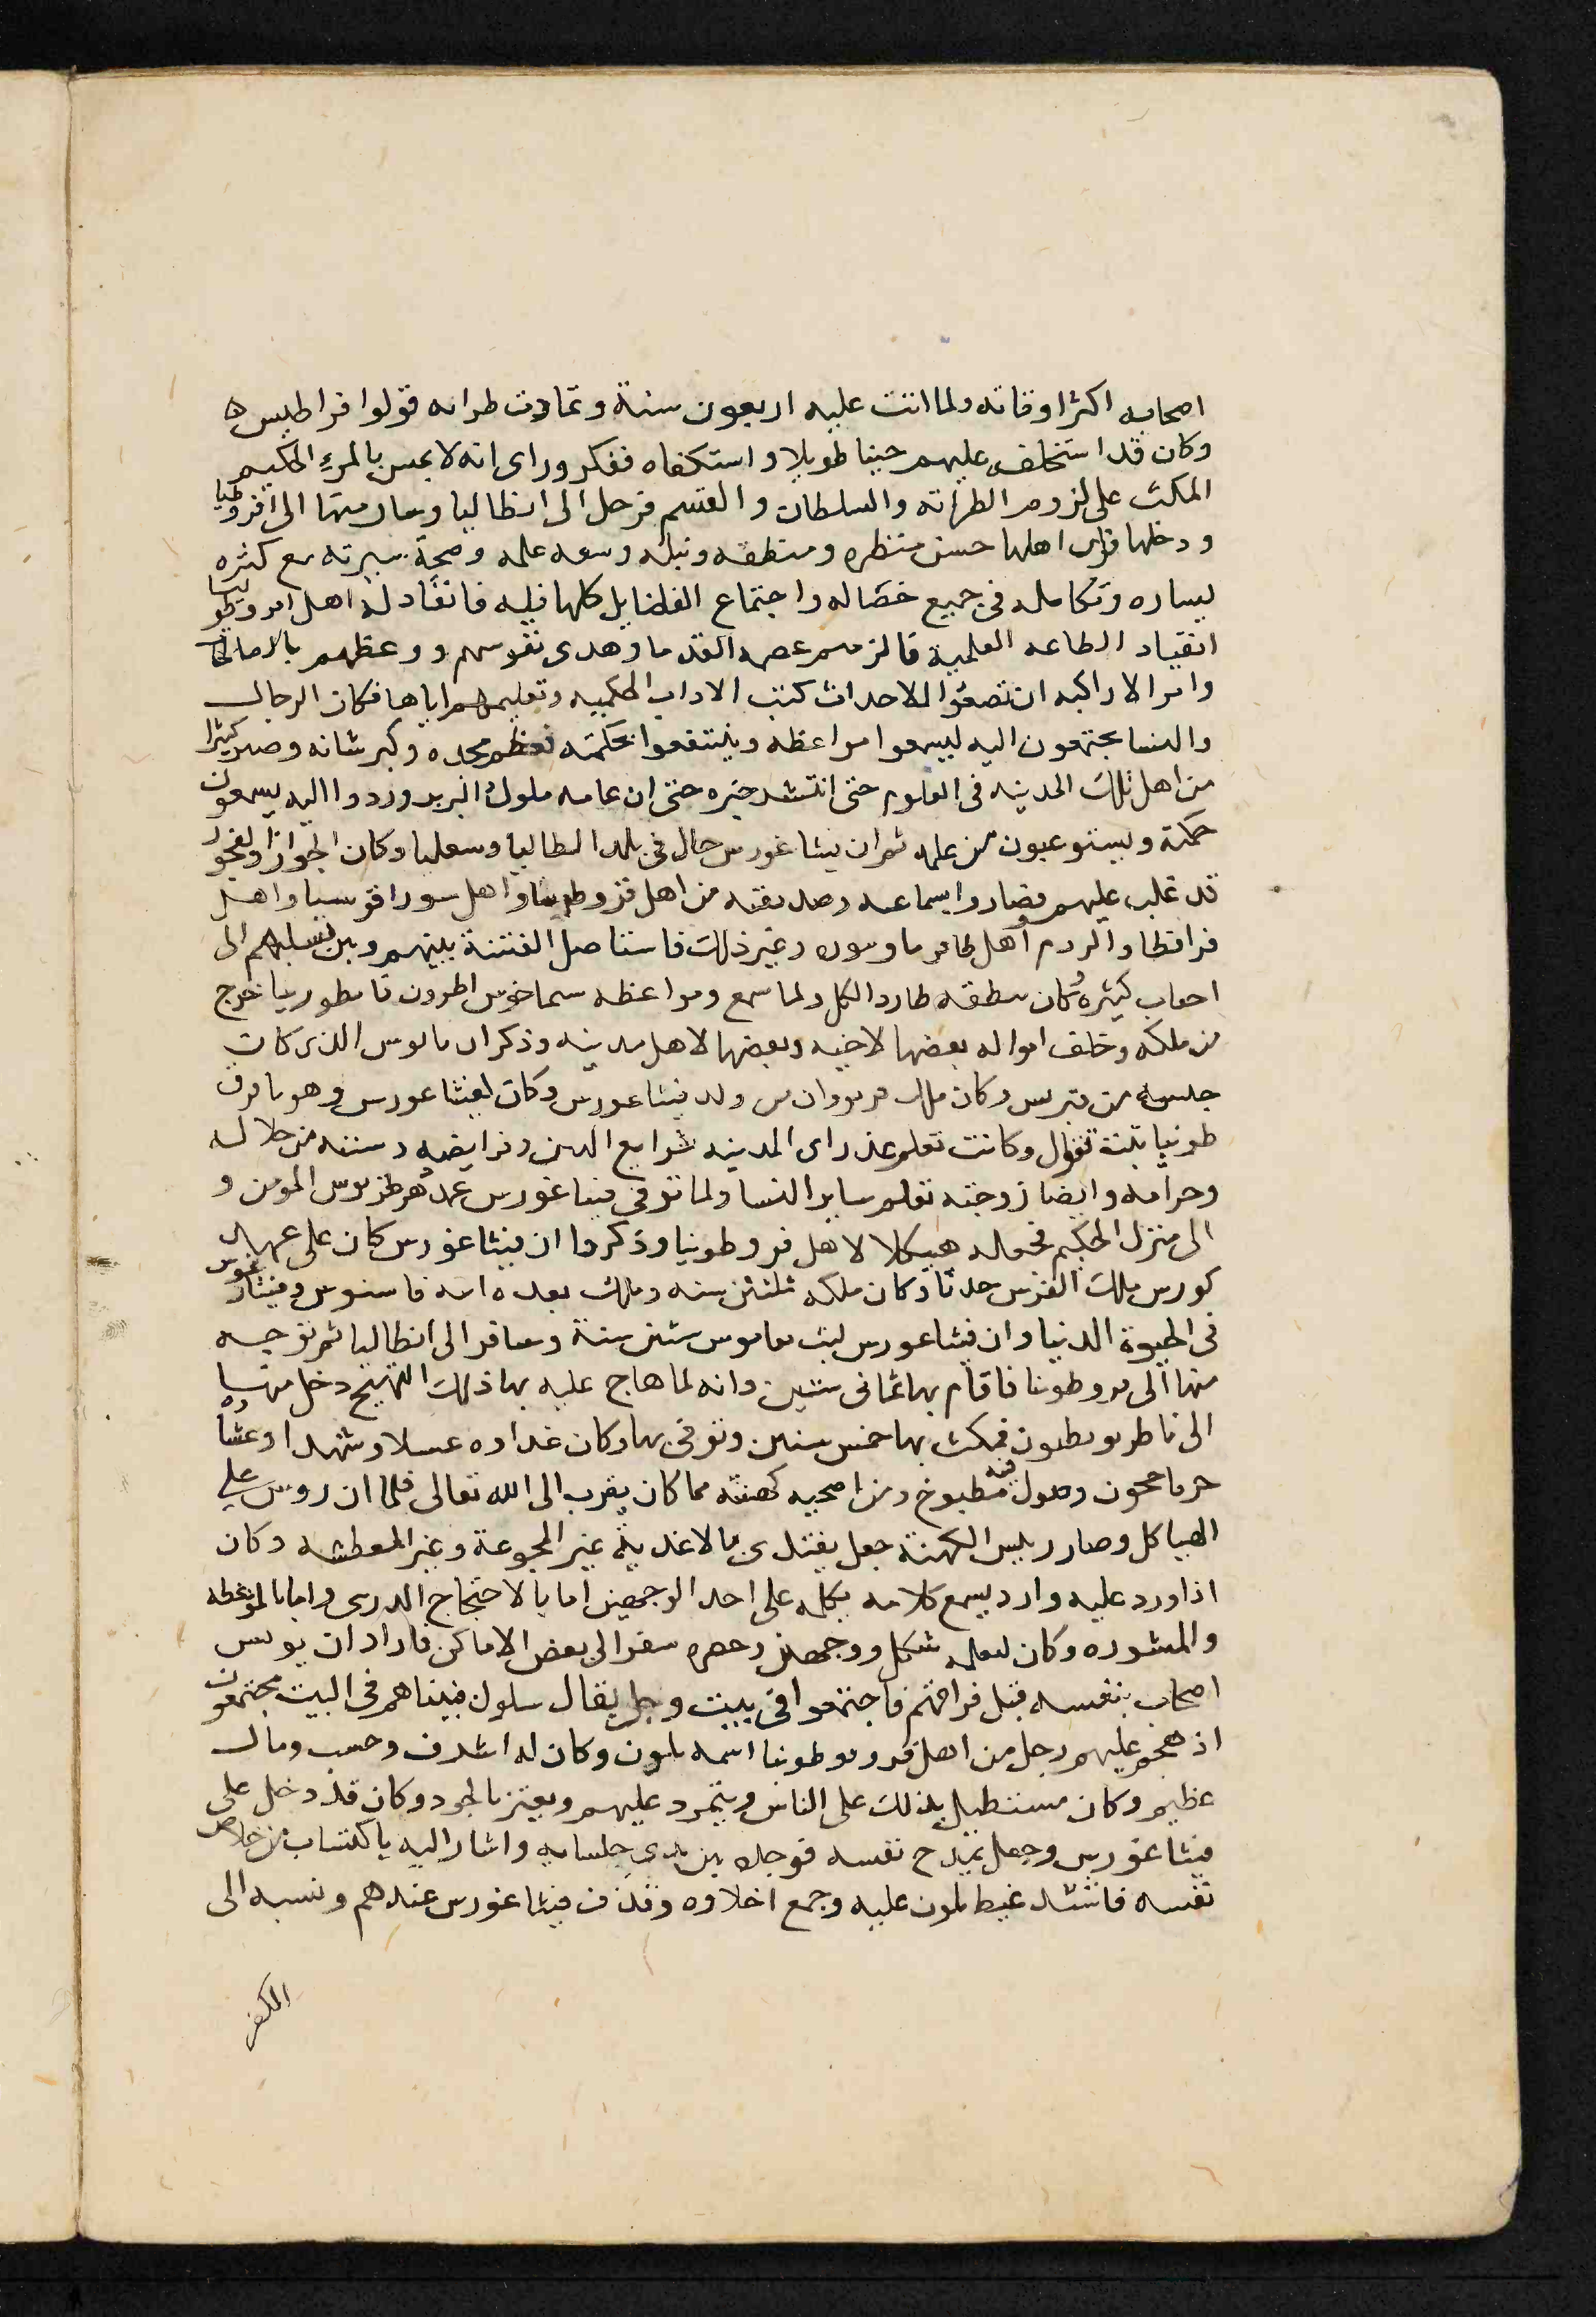 اصحابه اكثر اوقاته ولما اتت عليه اربعون سنة وتمادت طرانه قولوا قراطيس ه
وكان قد استخلف عليهم حينا طويلا واستكفاه ففكر وراى انه لا يحسن بالمرءِ الحكيم
المكث على لزوم الطرانه والسلطان والقسم فرحل الى انطاليا وسار منها الى افروطيا
ودخلها فراى اهلها حسن منظره ومنطقه ونبله وسعه علمه وصحة سيرته مع كثره
يساره وتكامله فى جميع خصاله واجتماع الفضايل كلها فيه فانقاد له اهل
انقياد الطاعه العلمية فالزمهم عصمه القدما وهدى نفوسهم ووعظهم بالصالحات
وامر الاراكبه ان تضعوا للاحداث كتب الاداب الحكميه وتعليمهم اياها فكان الرجال
والنسا يجتمعون اليه ليسمعوا مواعظه وينتفعوا بحكمته فعظم مجده وكبر شانه وصير كثيرا
من اهل تلك المدينه فى العلوم حتى انتشر خبره حتى ان عامه ملوك البربر وردوا اليه يسمعون
حكمته ويستوعبون من علمه ثم ان فيثاغورس جال فى بلد انطاليا وسعليا وكان الجواز والفجور
قد غلب عليهم فصاروا سماعه وصديقته من اهل واهل سوراقوسيا واهل
فرانطا والردم اهل وغير ذلك فاستاصل الفتنة بينهم وبين نسلهم الى
احقاب كثيره وكان منطقه طاردا لكل ولما سمع ومواعظه سماخوس اطرون خرج
من ملكه وخلف امواله بعضها لاخيه وبعضها لاهل مدينه وذكر ان الذى كان
جلسه من قبرس وكان ملك ولد فيثاغورس وكان لفيثاغورس وهو
طونيا بنت تقال وكانت تعلم عذراى المدينه شرايع الدين وفرايضه وسننه من حلاله
وحرامه وايضا زوجته تعلم ساير النسا ولما توفى فيثاغورس عمد المومن و
الى منزل الحكيم فجعله هيكلا لاهل فروطونيا وذكروا ان فيثاغورس كان على عهد
كورس ملك الفرس حدثا وكان ملكه ثلثين سنه وملك بعده ابنه فاسنوس وفيثاغورس
فى الحيوة الدنيا وان فيثاغورس لبث ستين سنة وسافر الى انطاليا ثم توجه
منها الى فروطونيا فاقام بها ثمانى سنين وانه لما هاج عليه بها ذلك التهيج دخل منها
الى فمكث بها خمس سنين وتوفى بها وكان غداوه عسلا وشهدا وعشاه
خبز معجون وبقول مطبوخ ومن اضحيه كهنته مما كان يقرب الى الله تعالى فلما ان روس على
الهياكل وصار رييس الكهنة جعل يغتدى بالاغديه غير المجوعة وغير المعطشه وكان
اذا ورد عليه وارد يسمع كلامه يكلمه على احد الوجهين اما بالاحتجاج الدرى واما بالموعظه
والمشوره وكان لعلمه شكل ووجهين وحضره سفر الى بعض الاماكن فاراد ان يونس
اصحاب بنفسه قبل فراقهم فاجتمعوا فى بيت رجل يقال سلول فبيناهم فى البيت مجتمعون
اذ هجم عليهم رجل من اهل فروطونيا اسمه ملون وكان له اشرف وحسب ومال
عظيم وكان مستطيل بذلك على الناس ويتمرد عليهم ويعتز بالجود وكان قد دخل على
فيثاغورس وجعل يمدح نفسه فوجله بين يدى جلسايه واشار اليه باكتساب من خلاص
نفسه فاشتد غيظ ملون عليه وجمع اخلاوه وقذف فيثاغورس عندهم ونسبه الى
الكفر